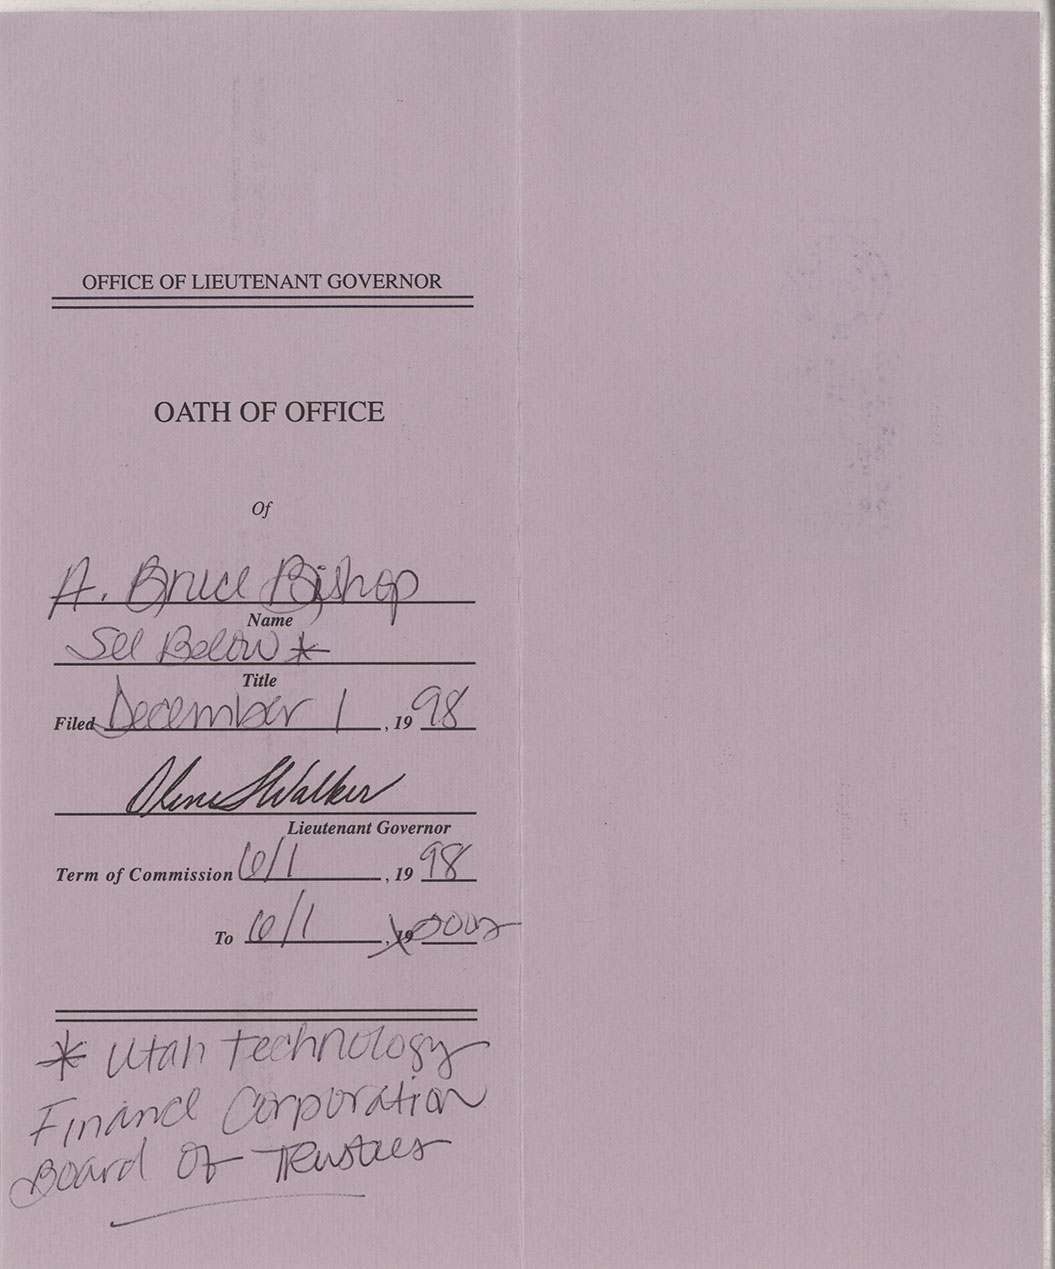 OFFICE OF LIEUTENANT GOVERNOR
OATH OF OFFICE
Of
A. Bruce Bishop
Name
See Below *
Title
Filed December 1, 19 98
Olene S Walker
Lieutenant Governor
Term of Commission 6/1, 19 98
To 6/1, 19 2002
* Utah Technology
Finance Corporation
Board Of Trustees